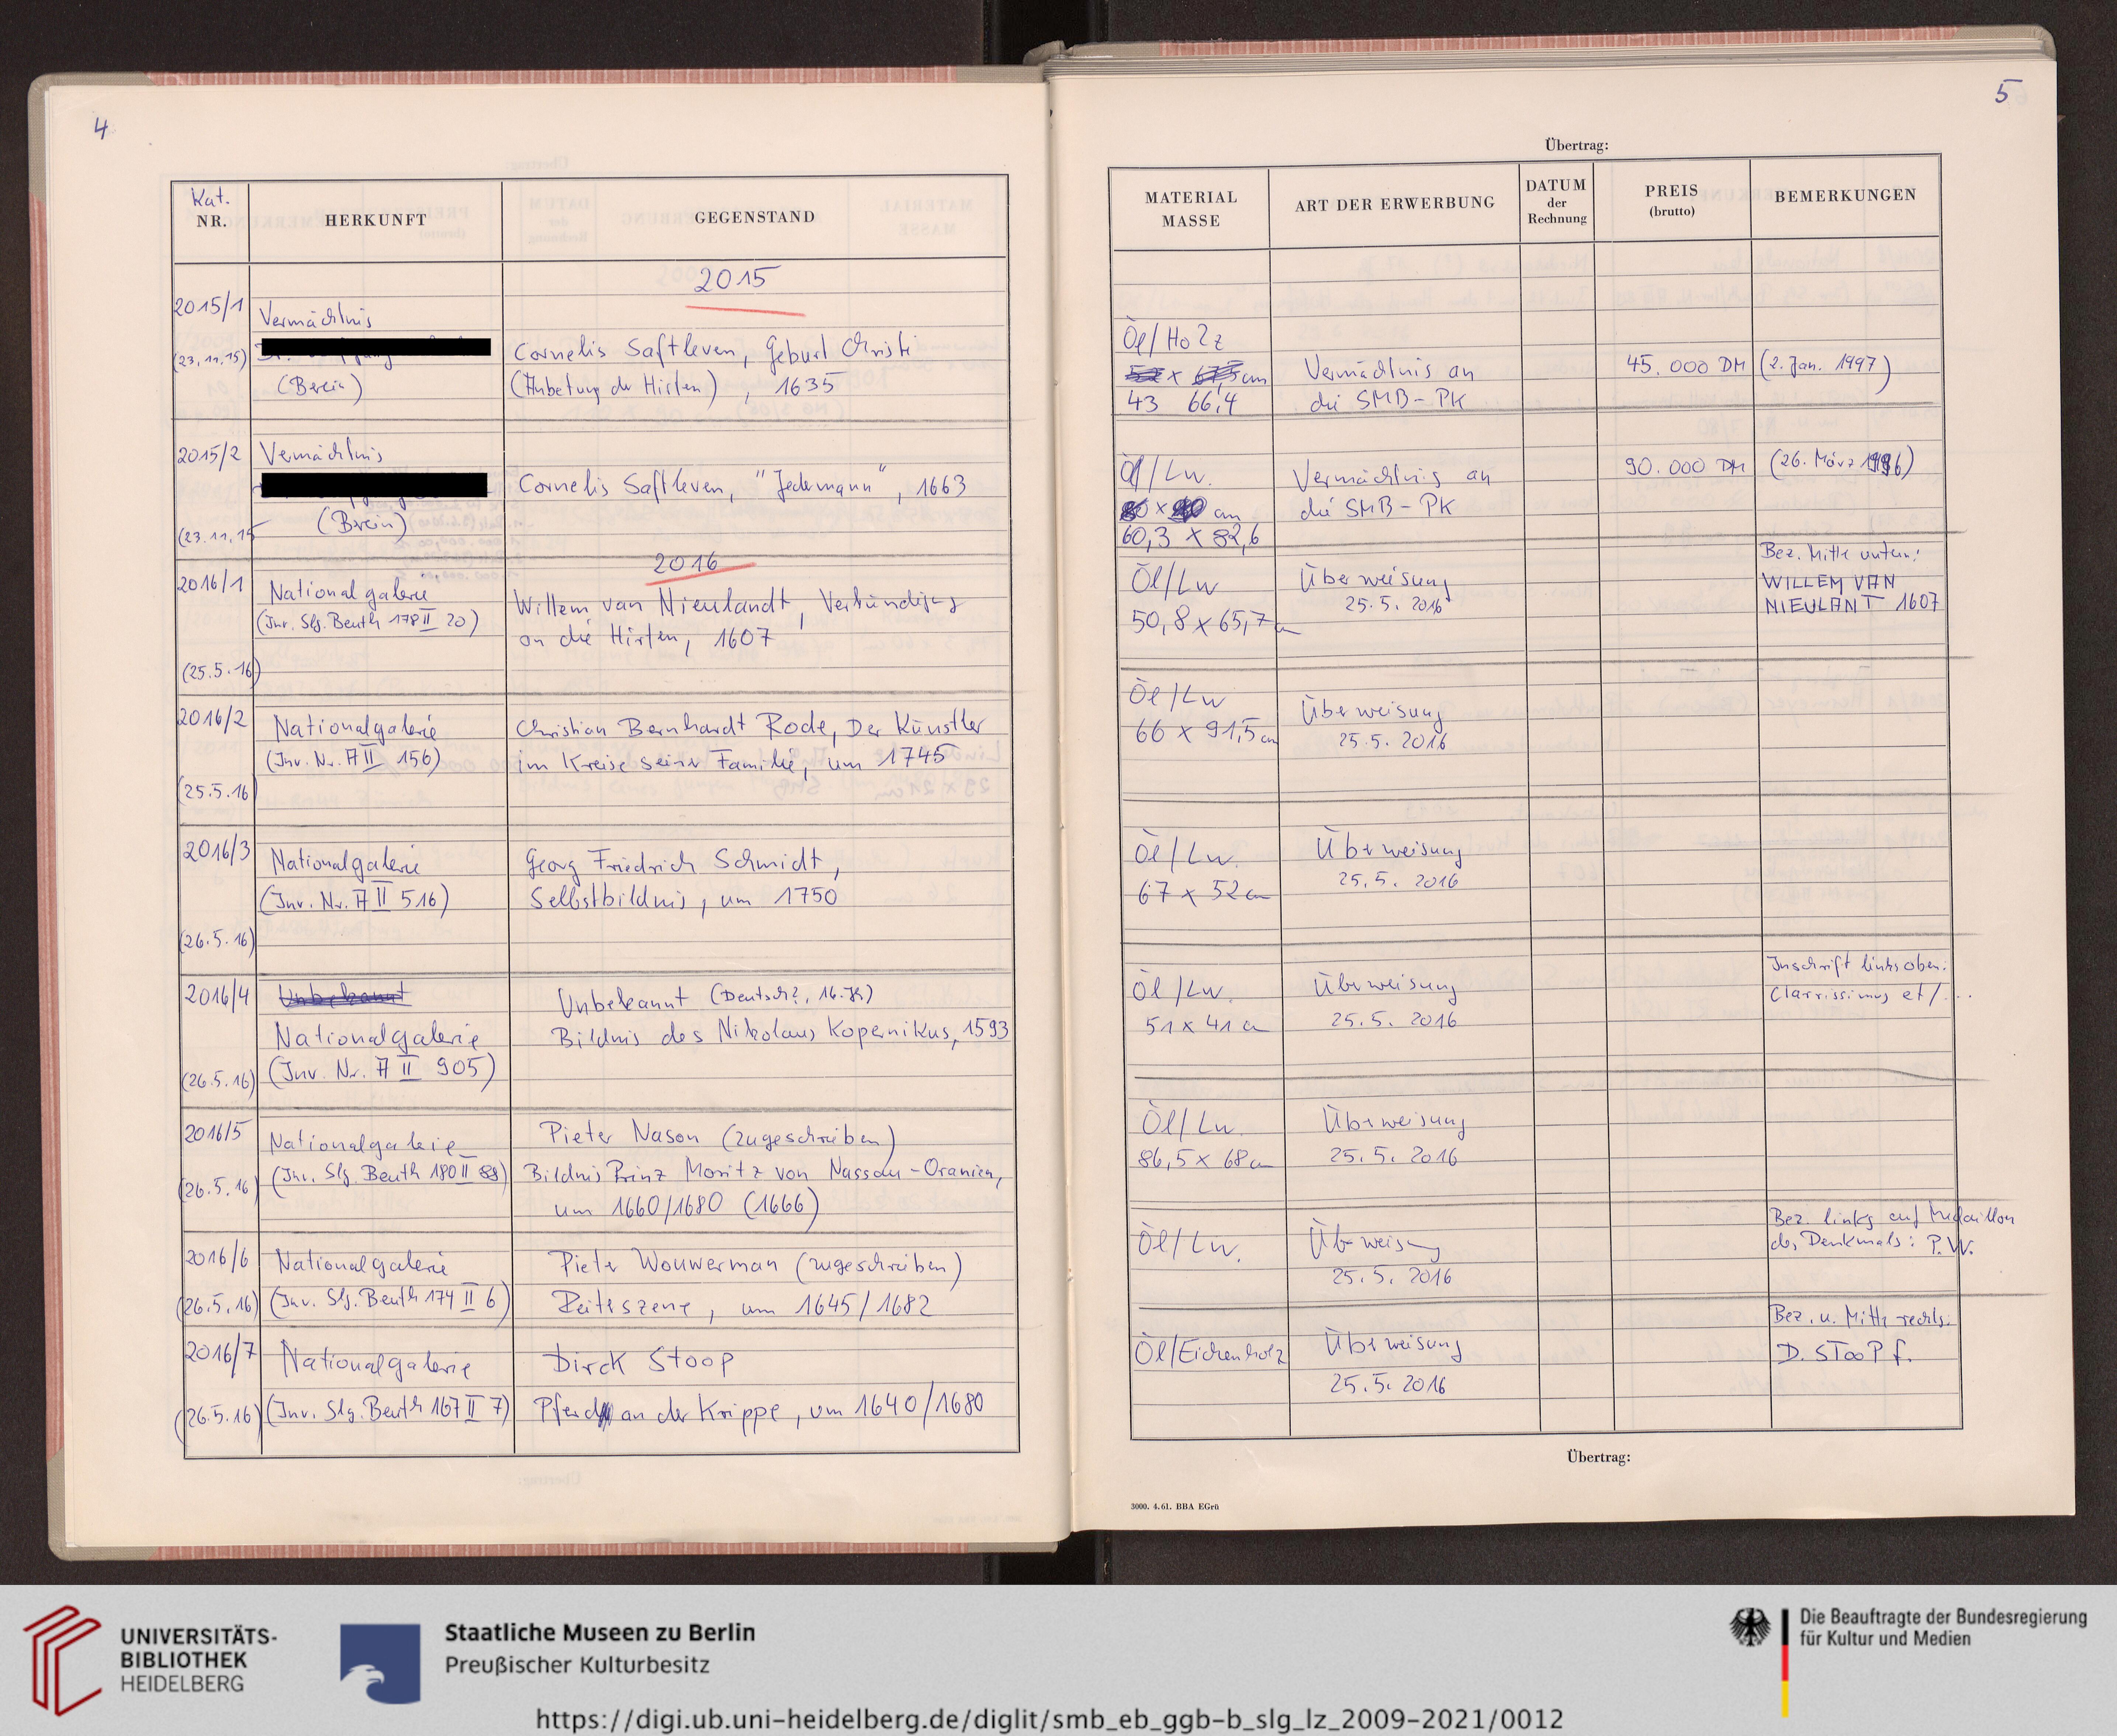 4
Kat.
NR.
HERKUNFT
GEGENSTAND
2015
2015/1
Vermächtnis
(23.11.15)
Cornelis Saftleven, Geburt Christi
(Berlin)
(Anbetung der Hirten), 1635
2015/2
Vermächtnis
Cornelis Saftleven, "Jedermann", 1663
(Berlin)
(23.11.15
2016
2016/1
Nationalgalerie
Willem van Nieulandt, Verkündigung
(Inv. Slg. Beuth 178 II 20)
an die Hirten, 1607
(25.5.16)
2016/2
Nationalgalerie
Christian Bernhardt Rode, Der Künstler
(Inv. Nr. A II 156)
im Kreise seiner Familie, um 1745
(25.5.16)
2016/3
Nationalgalerie
Georg Friedrich Schmidt,
(Inv. Nr. A II 516)
Selbstbildnis, um 1750
(26.5.16)
2016/4
Unbekannt
Unbekannt (Deutsch?, 16. Jh)
Nationalgalerie
Bildnis des Nikolaus Kopernikus, 1593
(26.5.16)
(Inv. Nr. A II 905)
2016/5
Nationalgalerie
Pieter Nason (zugeschrieben)
(26.5.16)
(Inv. Slg. Beuth 180 II 88)
Bildnis Prinz Moritz von Nassau-Oranien,
um 1660/1680 (1666)
2016/6
Nationalgalerie
Pieter Wouwerman (zugeschrieben)
(26.5.16)
(Inv. Slg. Beuth 174 II 6)
Reiterszene, um 1645/1682
2016/7
Nationalgalerie
Dirck Stoop
(26.5.16)
(Inv. Slg. Beuth 167 II 7)
Pferd an der Krippe, um 1640/1680
5
Übertrag:
MATERIAL
MASSE
ART DER ERWERBUNG
DATUM
der
Rechnung
PREIS
(brutto)
BEMERKUNGEN
Öl/Holz
x 67,5 cm
Vermächtnis an
45.000 DM
(2. Jan. 1997)
43 66,4
die SMB-PK
Öl/Lw.
Vermächtnis an
90.000 DM
(26. März 1996)
x cm
die SMB-PK
60,3 x 82,6
Bez. Mitte unten:
Öl/Lw
Überweisung
WILLEM VAN
50,8 x 65,7 cm
25.5.2016
NIEULANT 1607
Öl/Lw
Überweisung
66 x 91,5 cm
25.5.2016
Öl/Lw.
Überweisung
67 x 52 cm
25.5.2016
Inschrift links oben:
Öl/Lw.
Überweisung
Clarissimus et/...
51 x 41 cm
25.5.2016
Öl/Lw.
Überweisung
86,5 x 68 cm
25.5.2016
Bez. links auf Medaillon
Öl/Lw.
Überweisung
des Denkmals: P.W.
25.5.2016
Bez. u. Mitte rechts:
Öl/Eichenholz
Überweisung
D. STooP f.
25.5.2016
Übertrag:
3000. 4.61. BBA EGrü
UNIVERSITÄTS-
BIBLIOTHEK
HEIDELBERG
Staatliche Museen zu Berlin
Preußischer Kulturbesitz
Die Beauftragte der Bundesregierung
für Kultur und Medien
https://digi.ub.uni-heidelberg.de/diglit/smb_eb_ggb-b_slg_lz_2009-2021/0012